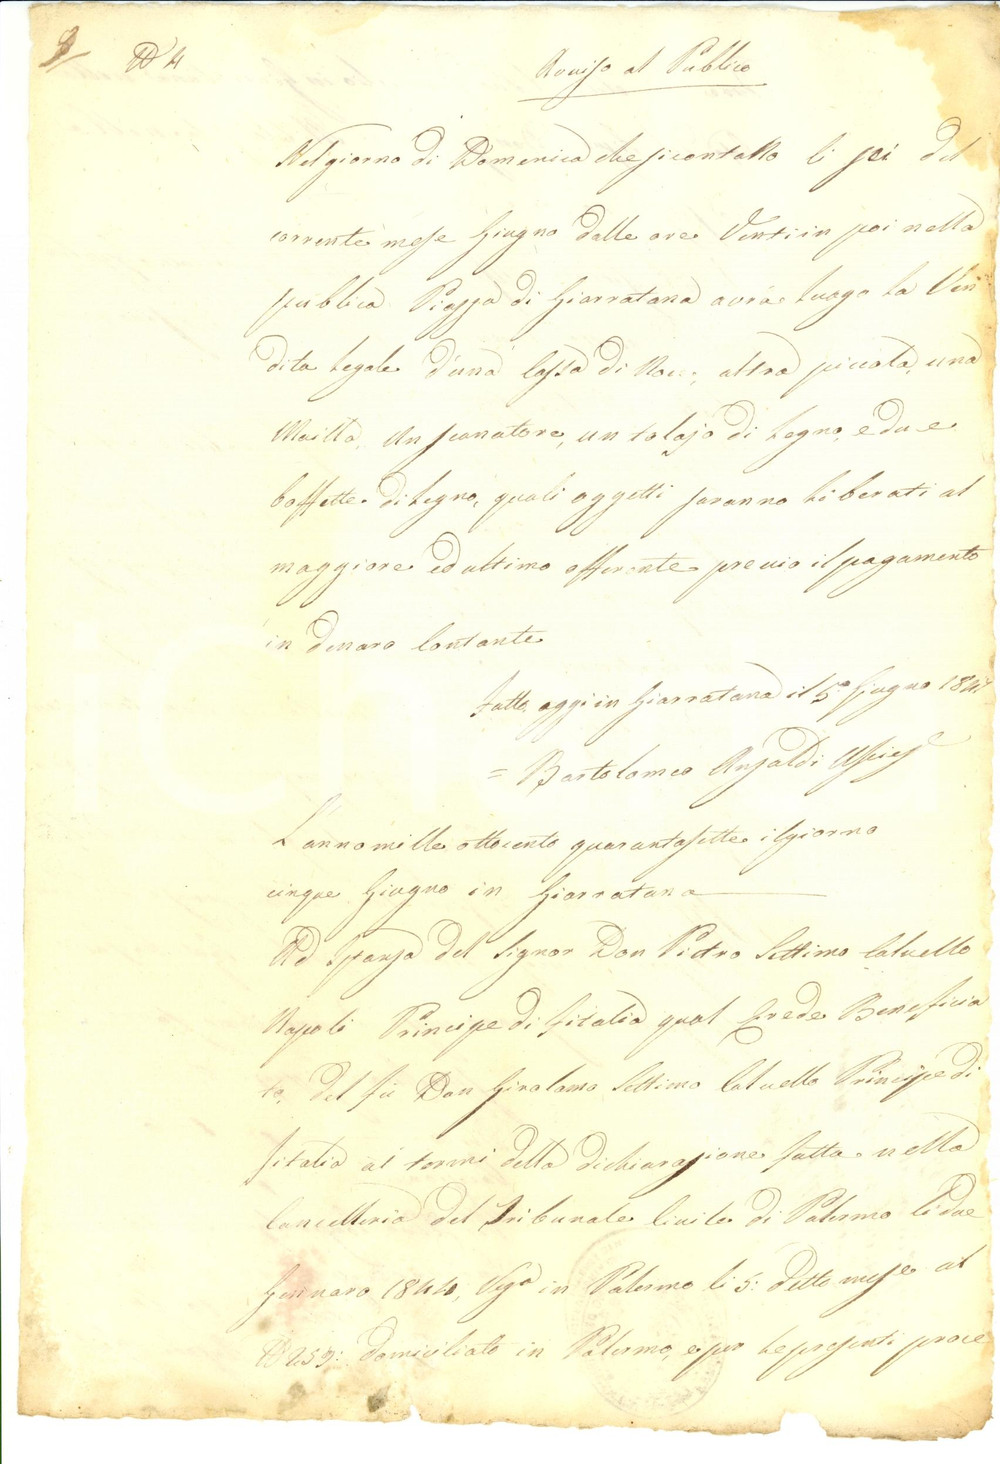 N 4
Avviso al Publico
Nel giorno di Domenica che si contano li sei del
corrente mese Giugno dalle ore Venti in poi nella
publica Piazza di Giarratana avrà luogo la Ven
dita legale d'una cassa di Noce, altra piccola, una
Mailla, un scanatore, un telajo di legno, e due
boffette di legno, quali oggetti saranno liberati al
maggiore ed ultimo offerente previo il pagamento
in denaro contante
Fatto oggi in Giarratana il 5 Giugno 1847
= Bartolomeo Ansaldi Usciere
L'anno mille ottocento quarantasette il giorno
cinque Giugno in Giarratana
Ad Istanza del Signor Don Pietro Settimo Calvello
Napoli Principe di Fitalia qual Erede Beneficia
to, del fù Don Girolamo Settimo Calvello Principe di
Fitalia ai termi della dichiarazione fatta nella
Cancelleria del Tribunale Civile di Palermo li due
Gennaro 1844, Reg.a in Palermo li 5: detto mese al
N 259: domiciliato in Palermo, e per le presenti proce